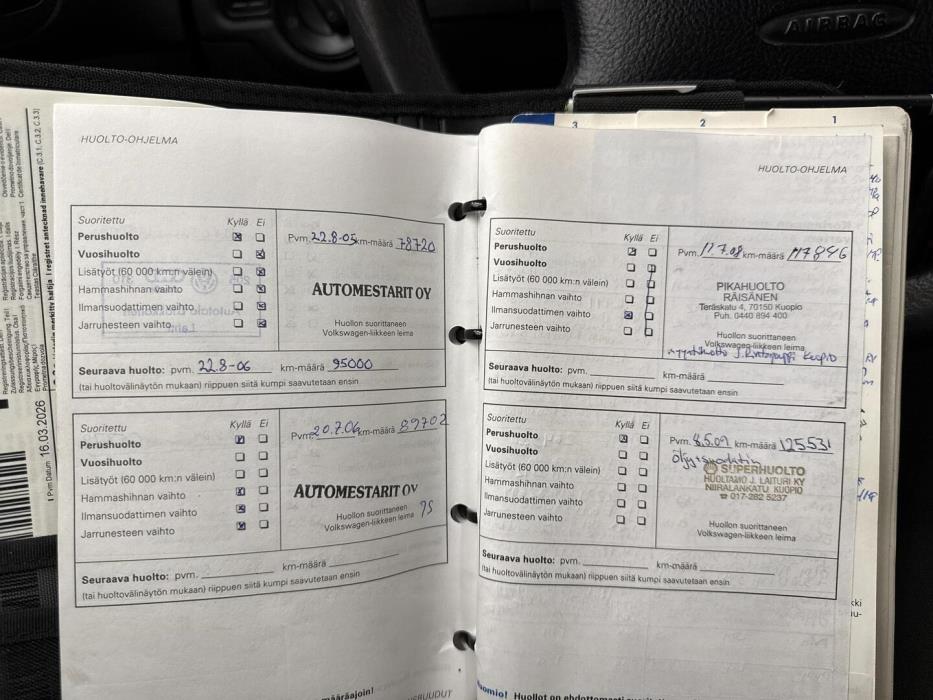 AIRBAG
3 2 1
HUOLTO-OHJELMA
Suoritettu Kyllä Ei
Perushuolto
Vuosihuolto
Lisätyöt (60 000 km:n välein)
Hammashihnan vaihto
Ilmansuodattimen vaihto
Jarrunesteen vaihto
Pvm. 22.8-05 km-määrä 78720
AUTOMESTARIT OY
Huollon suorittaneen
Volkswagen-liikkeen leima
Seuraava huolto: pvm. 22.8-06 km-määrä 95000
(tai huoltovälinäytön mukaan) riippuen siitä kumpi saavutetaan ensin
Suoritettu Kyllä Ei
Perushuolto
Vuosihuolto
Lisätyöt (60 000 km:n välein)
Hammashihnan vaihto
Ilmansuodattimen vaihto
Jarrunesteen vaihto
Pvm. 20.7.06 km-määrä 89702
AUTOMESTARIT OY
Huollon suorittaneen
Volkswagen-liikkeen leima
Seuraava huolto: pvm. km-määrä
(tai huoltovälinäytön mukaan) riippuen siitä kumpi saavutetaan ensin
HUOLTO-OHJELMA
Suoritettu Kyllä Ei
Perushuolto
Vuosihuolto
Lisätyöt (60 000 km:n välein)
Hammashihnan vaihto
Ilmansuodattimen vaihto
Jarrunesteen vaihto
Pvm. 17.7.08 km-määrä 117846
PIKAHUOLTO
RÄISÄNEN
Teräskatu 4, 70150 Kuopio
Puh. 0440 894 400
Huollon suorittaneen
Volkswagen-liikkeen leima
Kuopio
Seuraava huolto: pvm. km-määrä
(tai huoltovälinäytön mukaan) riippuen siitä kumpi saavutetaan ensin
Suoritettu Kyllä Ei
Perushuolto
Vuosihuolto
Lisätyöt (60 000 km:n välein)
Hammashihnan vaihto
Ilmansuodattimen vaihto
Jarrunesteen vaihto
Pvm. 8.5.09 km-määrä 125531
Öljy+suodatin
SUPERHUOLTO
HUOLTAMO J. LAITURI KY
NIIRALANKATU KUOPIO
☎ 017-282 5237
Huollon suorittaneen
Volkswagen-liikkeen leima
Seuraava huolto: pvm. km-määrä
(tai huoltovälinäytön mukaan) riippuen siitä kumpi saavutetaan ensin
Pvm Datum 16.03.2026